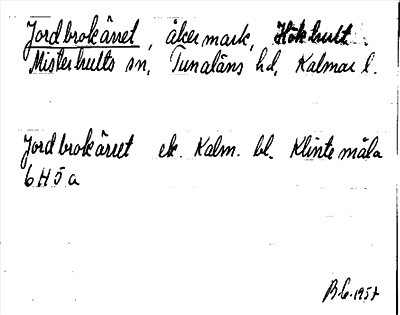 Jordbrokärret, åkermark, Hökhult.
Misterhults sn, Tunaläns hd, Kalmar l.
Jordbrokärret ek. Kalm. bl. Klintemåla
6H5a
1957